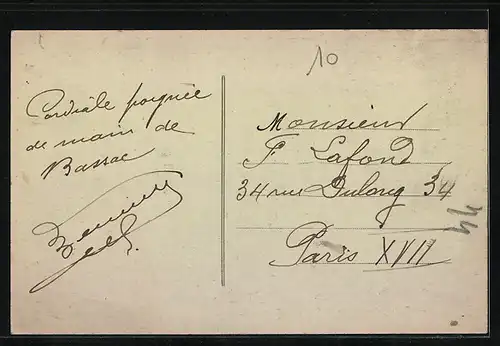 10
Cordiale poignée
de main de
Bassac
Monsieur
F Lafond
34 rue Dulong 34
Paris XVII
44